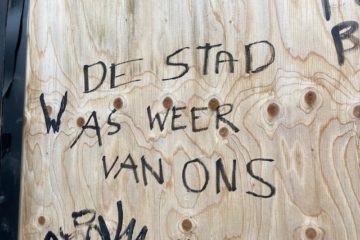 DE STAD
WAS WEER
VAN ONS